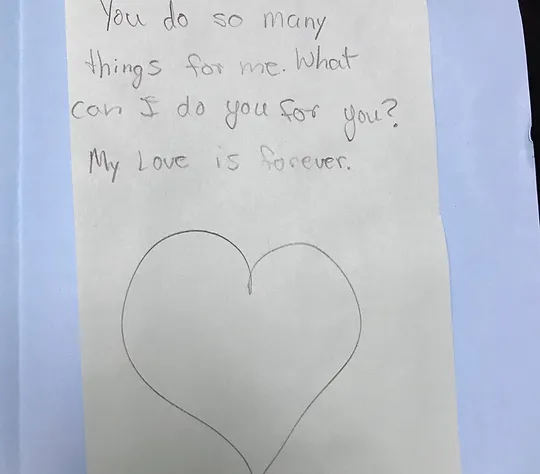 You do so many
things for me. What
can I do you for you?
My Love is forever.